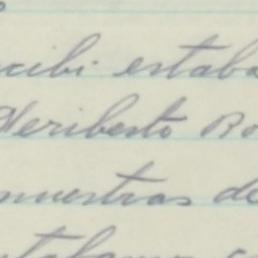 ecibi estaba
Heriberto Bo
muestras de